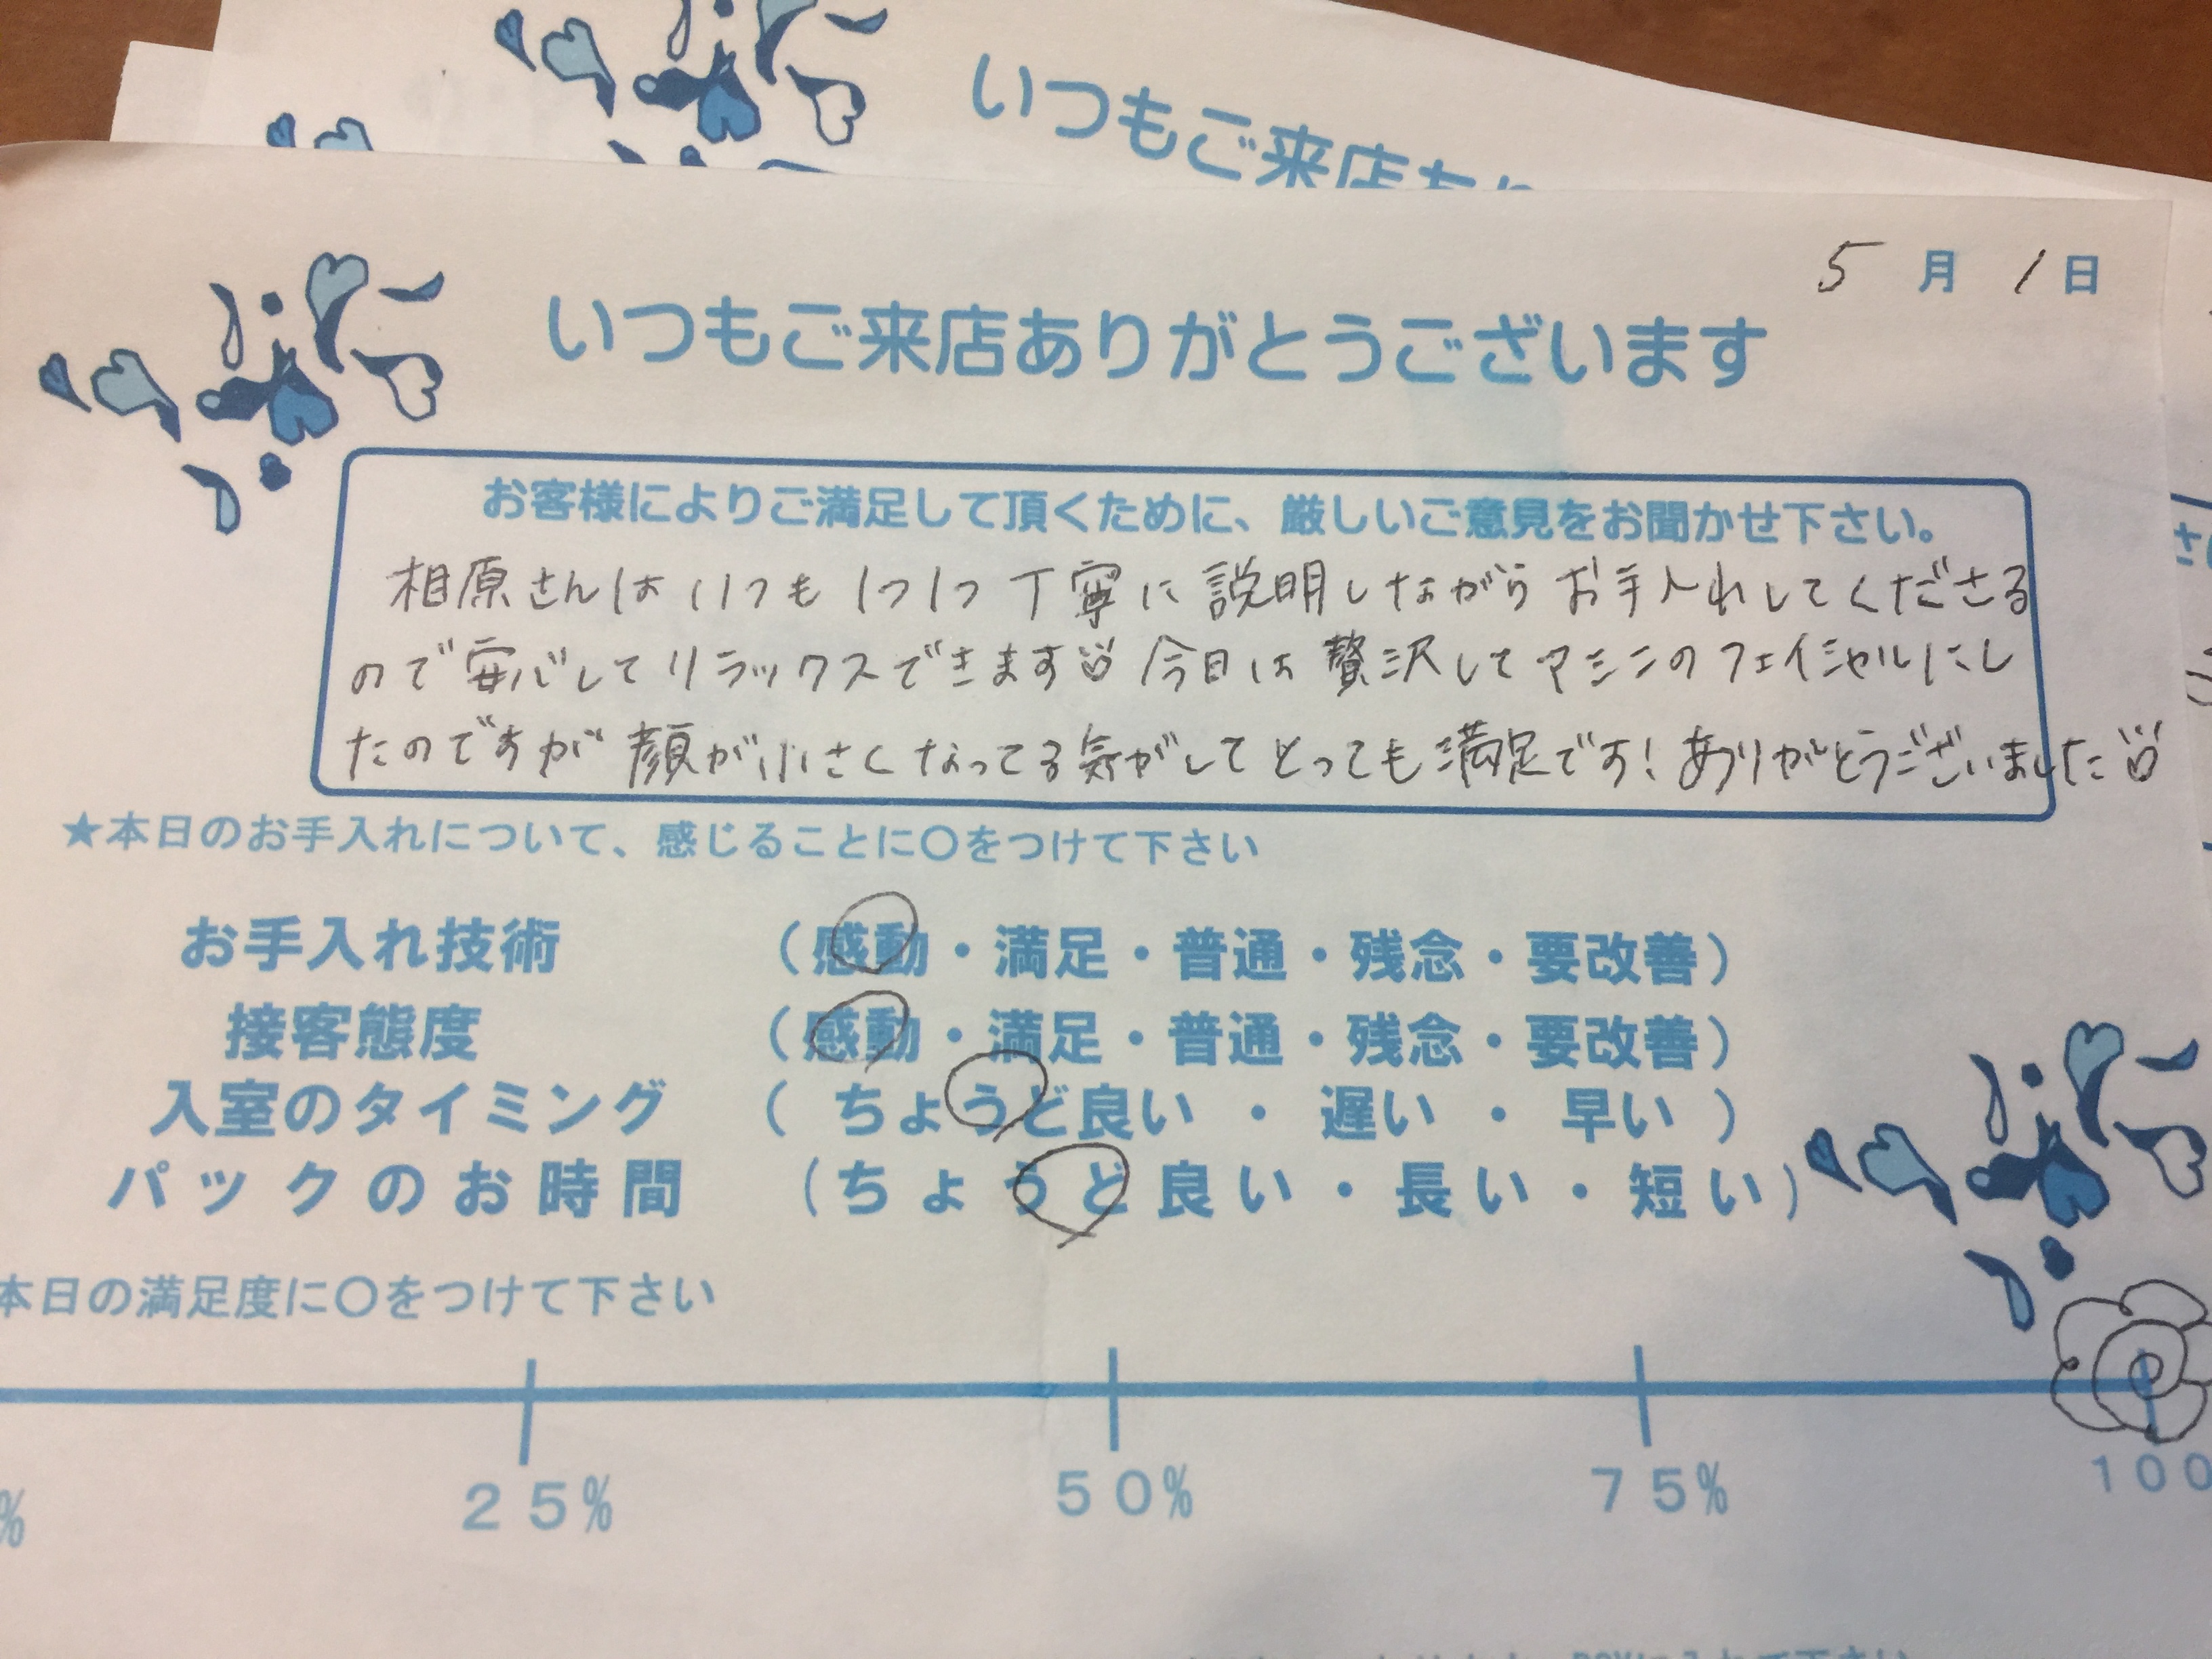 いつもご来店あり
5月1日
いつもご来店ありがとうございます
お客様によりご満足して頂くために、厳しいご意見をお聞かせ下さい。
相原さんはいつも1つ1つ丁寧に説明しながらお手入れしてくださる
ので安心してリラックスできます 今日は贅沢してマシンのフェイシャルにし
たのですが顔が小さくなってる気がしてとっても満足です!ありがとうございました
★本日のお手入れについて、感じることに〇をつけて下さい
お手入れ技術 (感動・満足・普通・残念・要改善)
接客態度 (感動・満足・普通・残念・要改善)
入室のタイミング (ちょうど良い・遅い・早い)
パックのお時間 (ちょうど良い・長い・短い)
本日の満足度に〇をつけて下さい
% 25% 50% 75% 100